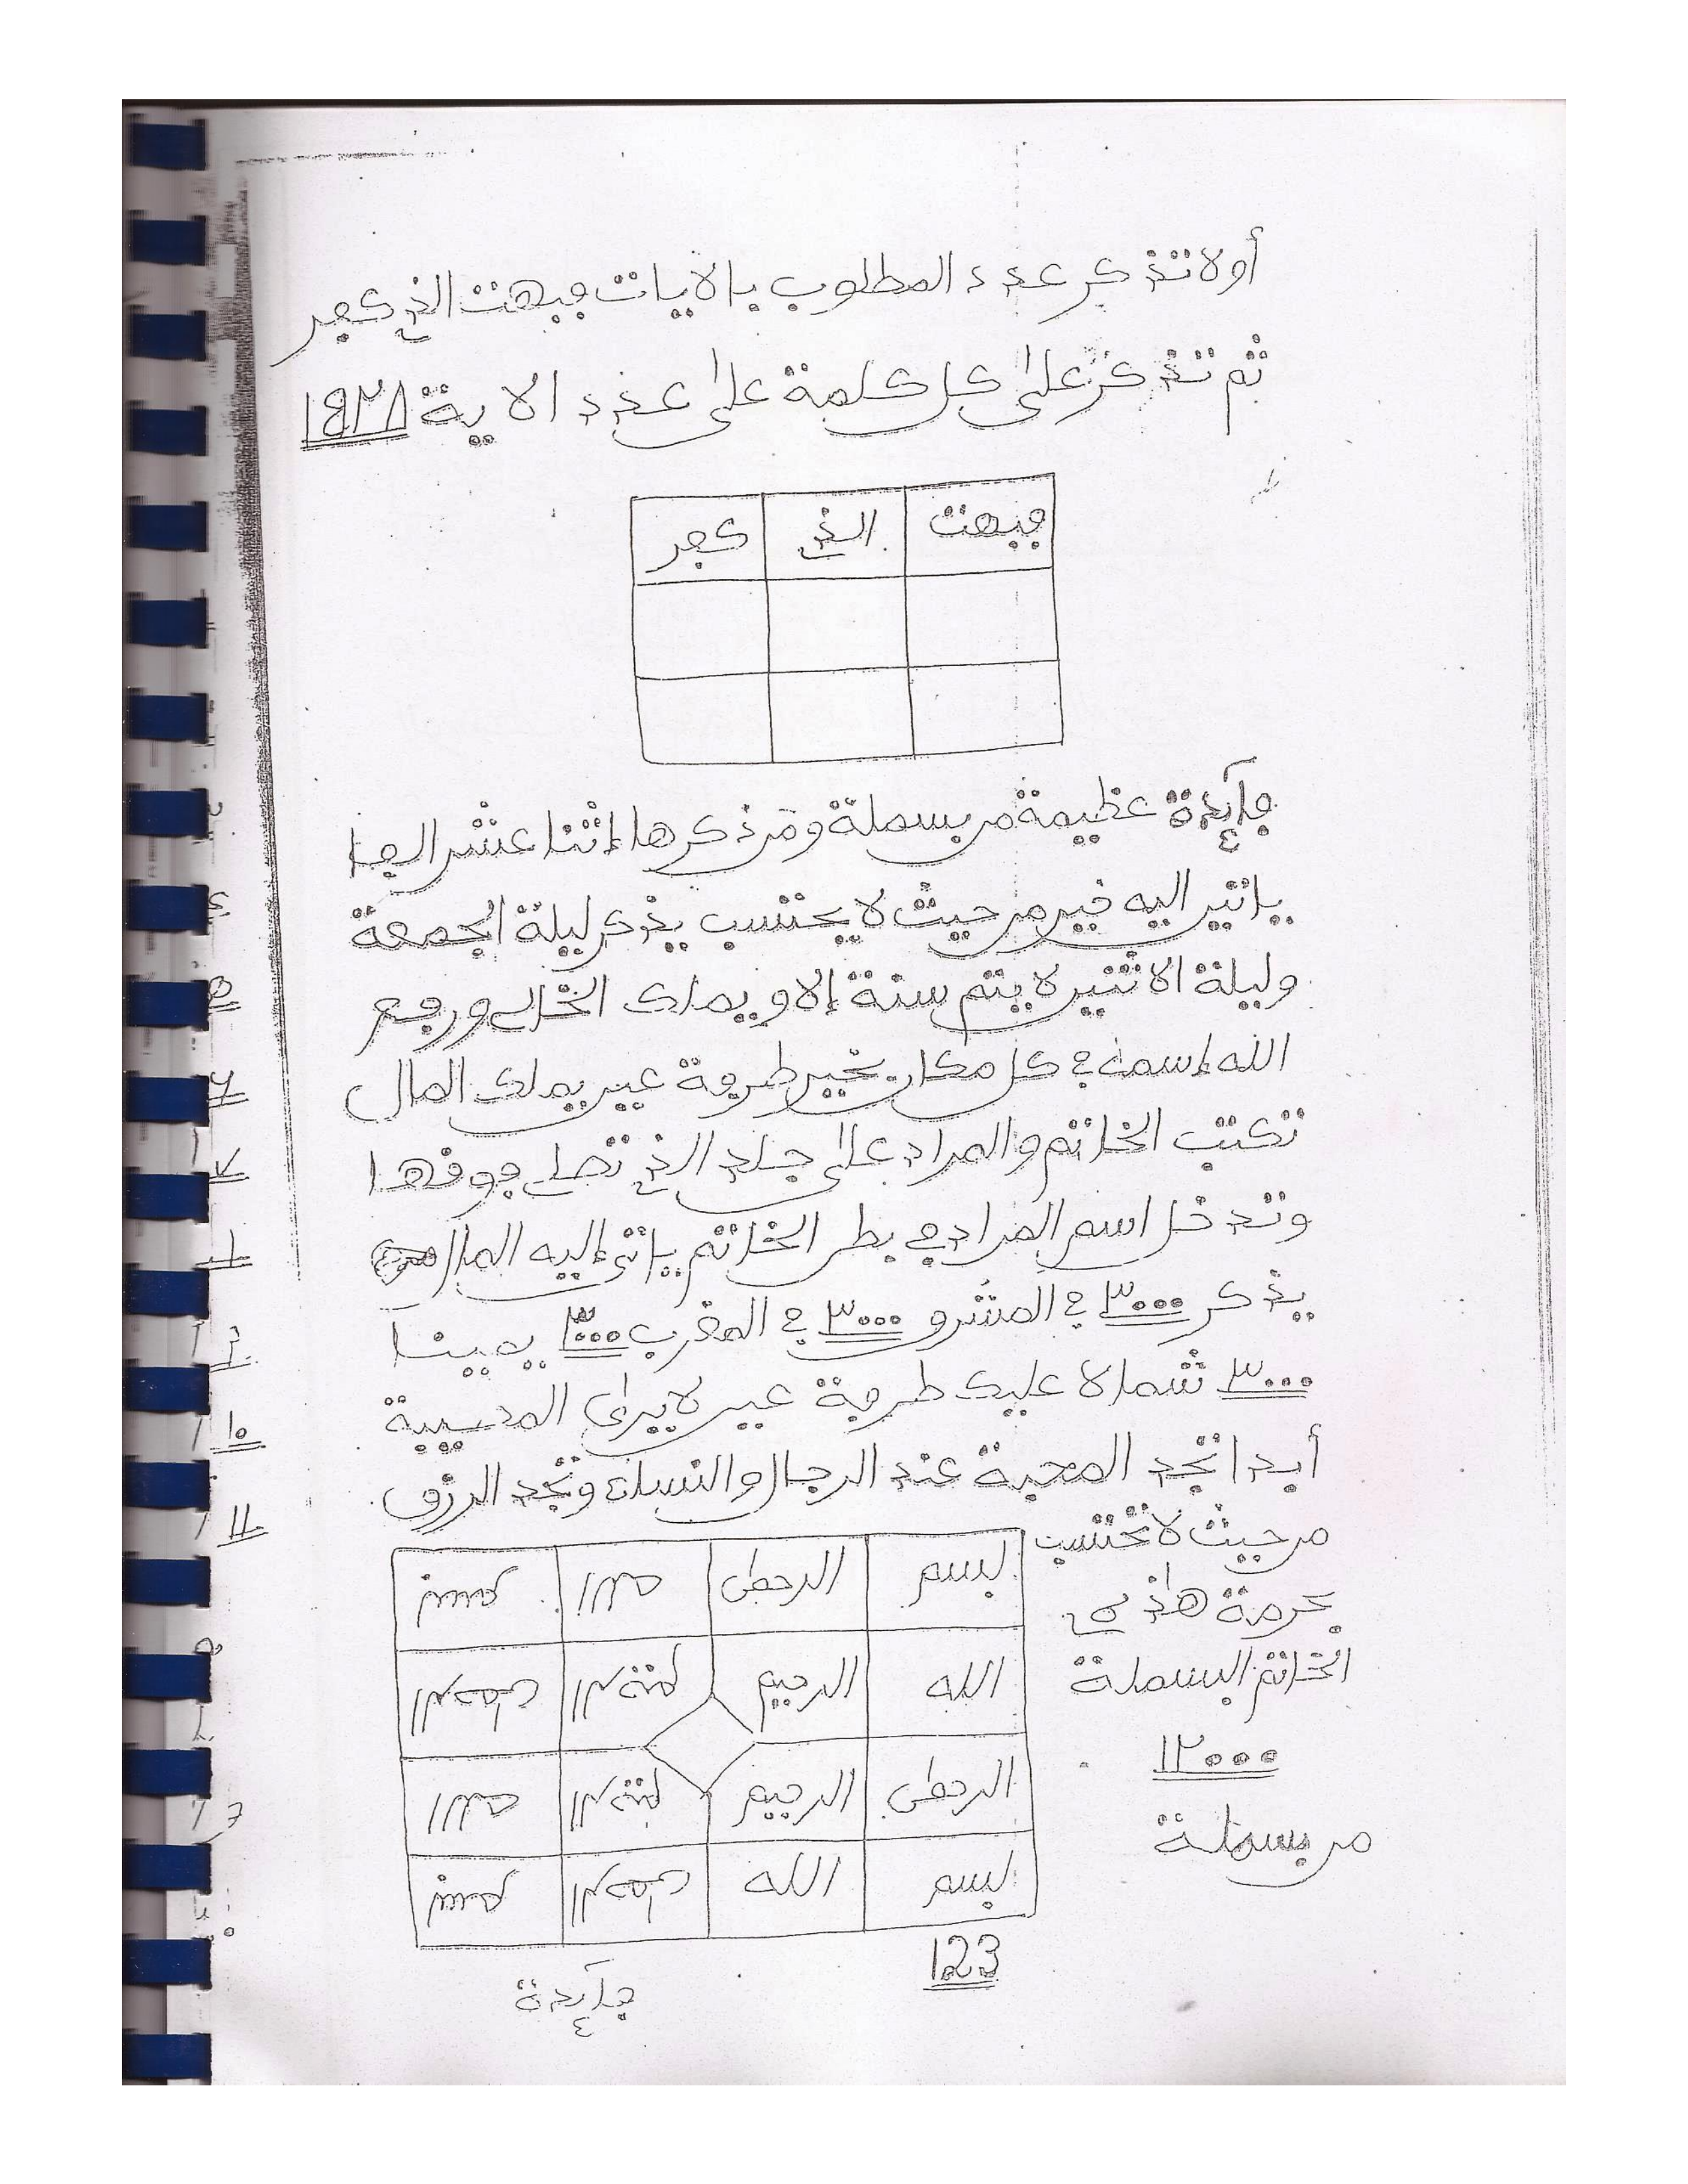 أولا تذكر عدد المطلوب بالايات فبهت الذي كفر
ثم تذكر على كل كلمة على عدد الاية ١٩٣٨
فبهت الذي كفر
فآئدة عظيمة من بسملة ومن ذكرها إثنا عشر الفا
ياتير اليه خير من حيث لا يحتسب يذكر ليلة الجمعة
وليلة الاثنين لا يتم سنة إلا ويملك الخلق ورفع
الله إسمه في كل مكان بخير طرفة عين يملك المال
تكتب الخاتم والمراد على جلد الذي تصلي فوقها
وتدخل اسم المراد في بطن الخاتم ياتى إليه المال
يذكر ٣٠٠٠ في المشرق ٣٠٠٠ في المغرب ٣٠٠٠ يمينا
٣٠٠٠ شمالا عليك طرفة عين لا يرى المصيبة
أبدا تجد المحبة عند الرجال والنساء وتجد الرزق
من حيث لا تحتسب
بحرمة هاذي
الخاتم البسملة
١٢٠٠٠
من بسملة
بسم الرحمن الله بسم
الله الرحيم الرحيم الرحمن
الرحمن الرحيم الرحيم الله
بسم الله الرحمن بسم
123
فآئدة
١٠
١١